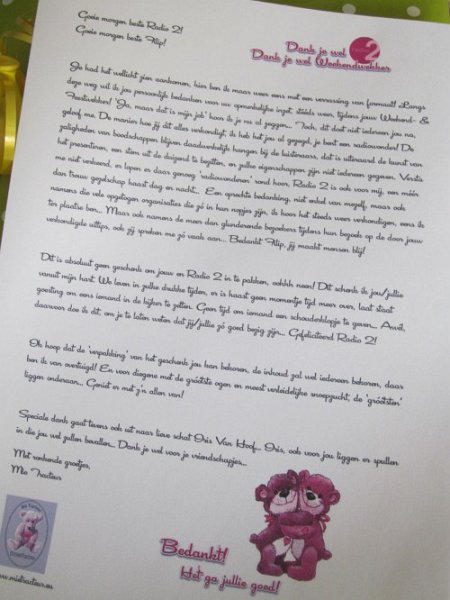 Goeie morgen beste Radio 2!
Goeie morgen beste Filip!
Dank je wel 2
Dank je wel Weekendwekker
Je had het wellicht zien aankomen, hier ben ik maar weer eens met een verrassing van formaat! Langs
deze weg wil ik jou persoonlijk bedanken voor uw opmerkelijke inzet, steeds weer, tijdens jouw Weekend- &
Feestwekker! 'Ja, maar dat is mijn job' hoor ik je nu al zeggen... Toch, dit doet niet iedereen jou na,
geloof me. De manier hoe jij dit alles verkondigt, ik heb het jou al gezegd, je bent een radiowonder! De
zaligheden van boodschappen blijven daadwerkelijk hangen bij de luisteraars, dat is uiteraard de kunst van
het presenteren, een stem uit de duizend te bezitten, en zulke eigenschappen zijn niet iedereen gegeven. Versta
me niet verkeerd, er lopen er daar genoeg 'radiowonderen' rond hoor. Radio 2 is ook voor mij, een méér
dan trouw gezelschap haast dag en nacht... Een oprechte bedanking, niet enkel van mezelf, maar ook
namens die vele opgelogen organisaties die zo in hun nopjes zijn, ik hoor het steeds weer verkondigen, eens ik
ter plaatse ben... Maar ook namens de meer dan glunderende bezoekers tijdens hun bezoek op de door jouw
verkondigde uittips, ook zij spreken me zo vaak aan... Bedankt Filip, jij maakt mensen blij!
Dit is absoluut geen geschenk om jouw en Radio 2 in te pakken, oohhh neen! Dit schenk ik jou/jullie
vanuit mijn hart. We leven in zulke drukke tijden, er is haast geen momentje tijd meer over, laat staat
goesting om eens iemand in de kijker te zetten. Geen tijd om iemand een schouderklopje te geven... Awel,
daarvoor doe ik dit, om je te laten weten dat jij/jullie zó goed bezig zijn... Gefeliciteerd Radio 2!
Ik hoop dat de 'verpakking' van het geschenk jou kan bekoren, de inhoud zal wel iedereen bekoren, daar
ben ik van overtuigd! En voor diegene met de grootste ogen en meest verleidelijke snoepzucht, de 'grootsten'
liggen onderaan... Geniet er met z'n allen van!
Speciale dank gaat tevens ook uit naar lieve schat Iris Van Hoof... Iris, ook voor jou liggen er spullen
in die jou wel zullen bevallen... Dank je wel voor je vriendschapjes...
Met vonkende groetjes,
Mia Tracteur
Bedankt!
Het ga jullie goed!